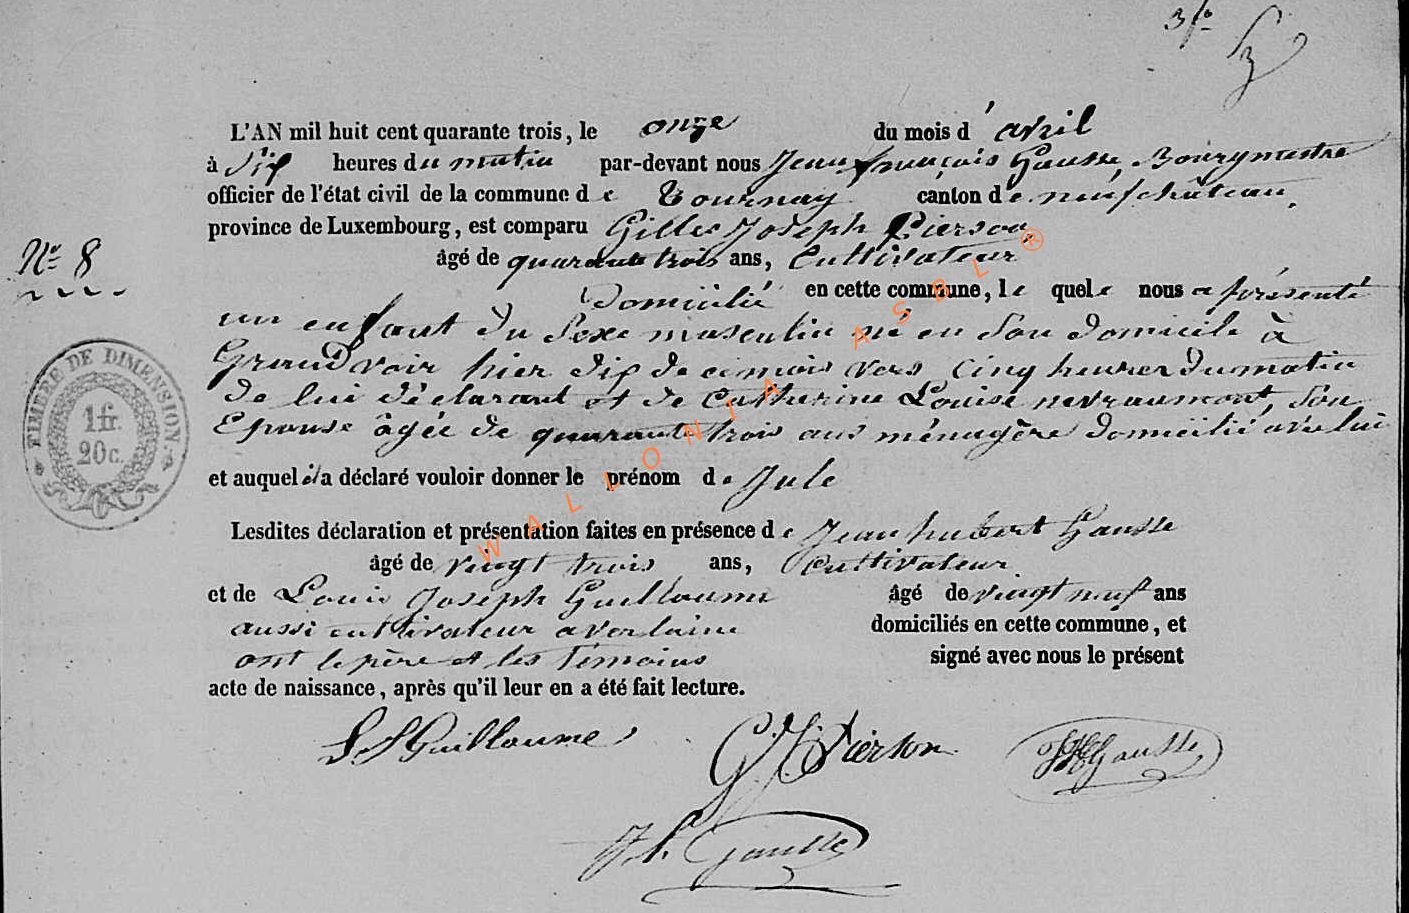 3 fo
L'AN mil huit cent quarante trois, le onze du mois d'avril
à six heures du matin par-devant nous Jean françois Gausse, Bourgmestre
officier de l'état civil de la commune de Tournay canton de neufchâteau,
province de Luxembourg, est comparu Gilles Joseph Pierson,
N° 8
âgé de quarante trois ans, Cultivateur
Domicilié en cette commune, le quele nous a présenté
un enfant du Sexe masculin né en Son domicile à
Grandvoir hier dix de ce mois vers cinq heures du matin
de lui déclarant et de Catherine Louise nevraumont Son
Epouse âgée de quarante trois ans ménagère domicilié avec lui
et auquel il a déclaré vouloir donner le prénom de Jule
Lesdites déclaration et présentation faites en présence de Jean hubert Gausse
âgé de vingt trois ans, Cultivateur
et de Louis Joseph Guillaume âgé de vingt neuf ans
aussi cultivateur a verlaine domiciliés en cette commune, et
ont le père et les témoins signé avec nous le présent
acte de naissance, après qu'il leur en a été fait lecture.
L J Guillaume G. J. Pierson JH Gausse
J f. Gausse
TIMBRE DE DIMENSION
1 fr.
20 c.
WALLONIA ASBL ®